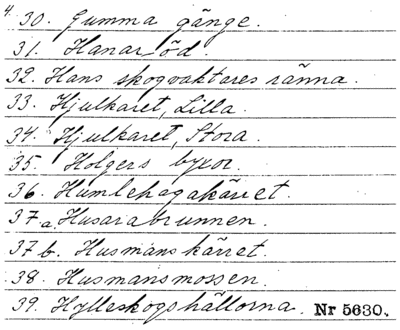 4.
30. Gumma gänge.
31. Hanar öd.
32. Hans skogvaktares ränna.
33. Hjulkaret, Lilla.
34. Hjulkaret, Stora.
35 Holgers byxor.
36. Humlehagakärret.
37 a. Husarabrunnen.
37 b. Husmanskärret.
38. Husmansmossen.
39. Hylleskogshällorna. Nr 5630.